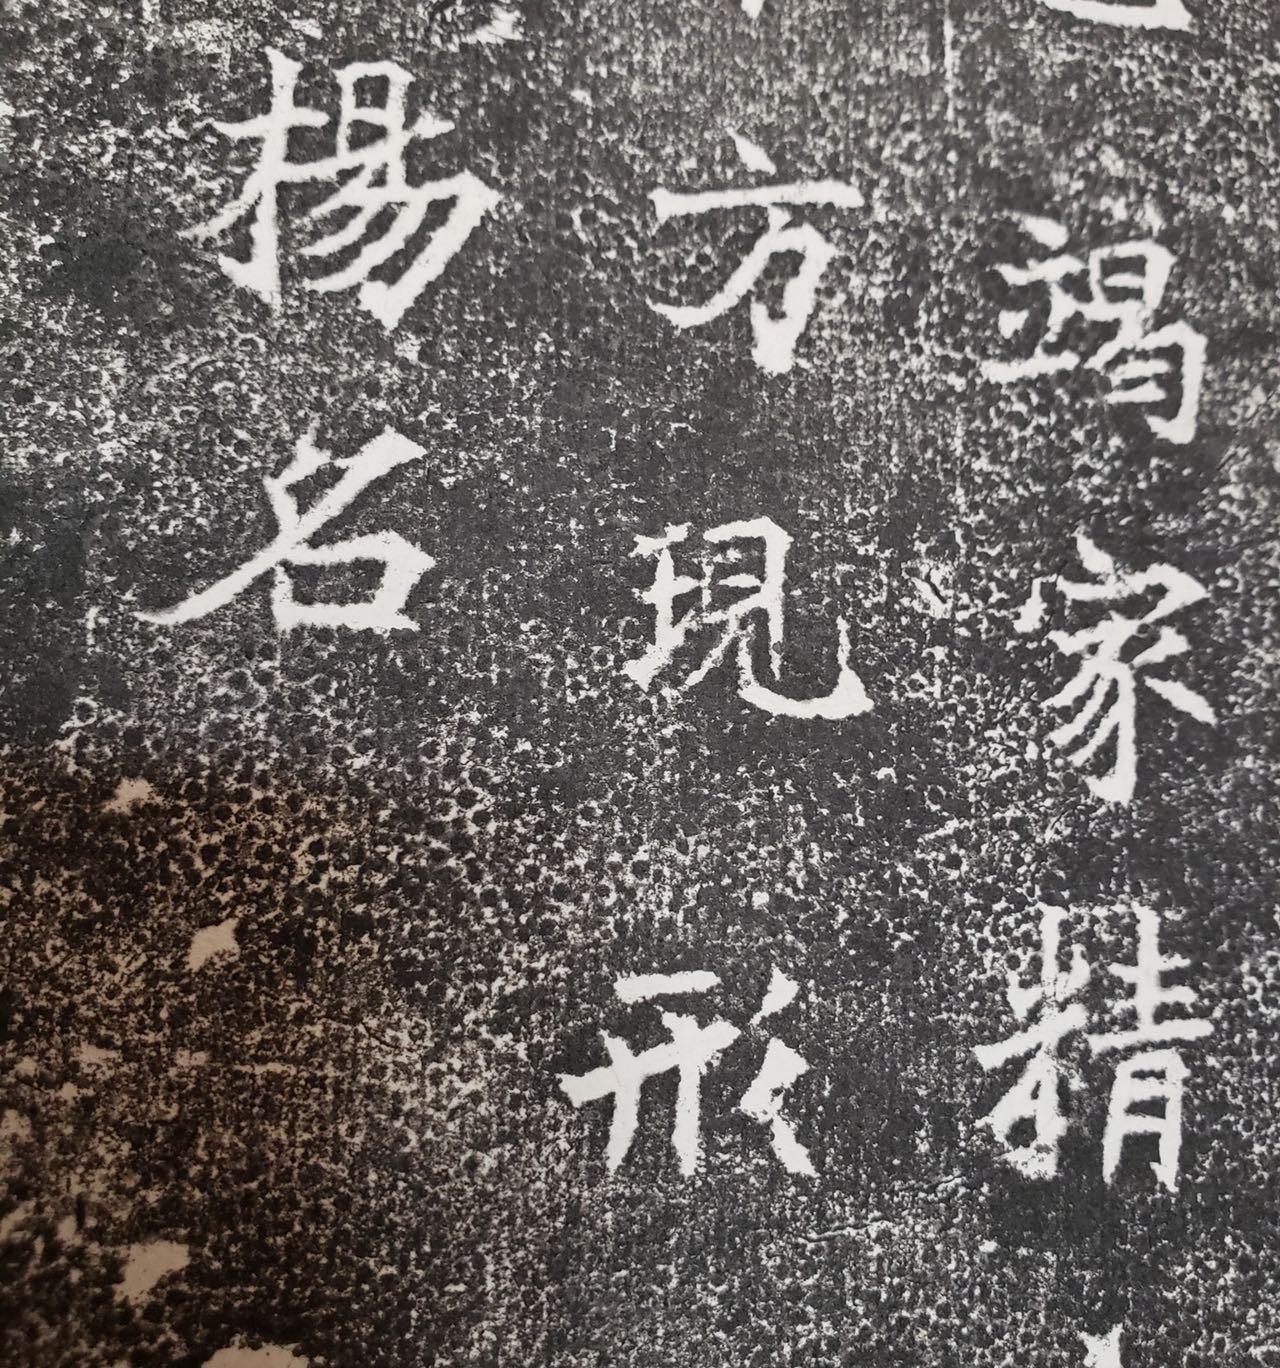 竭家精
方現形
揚名